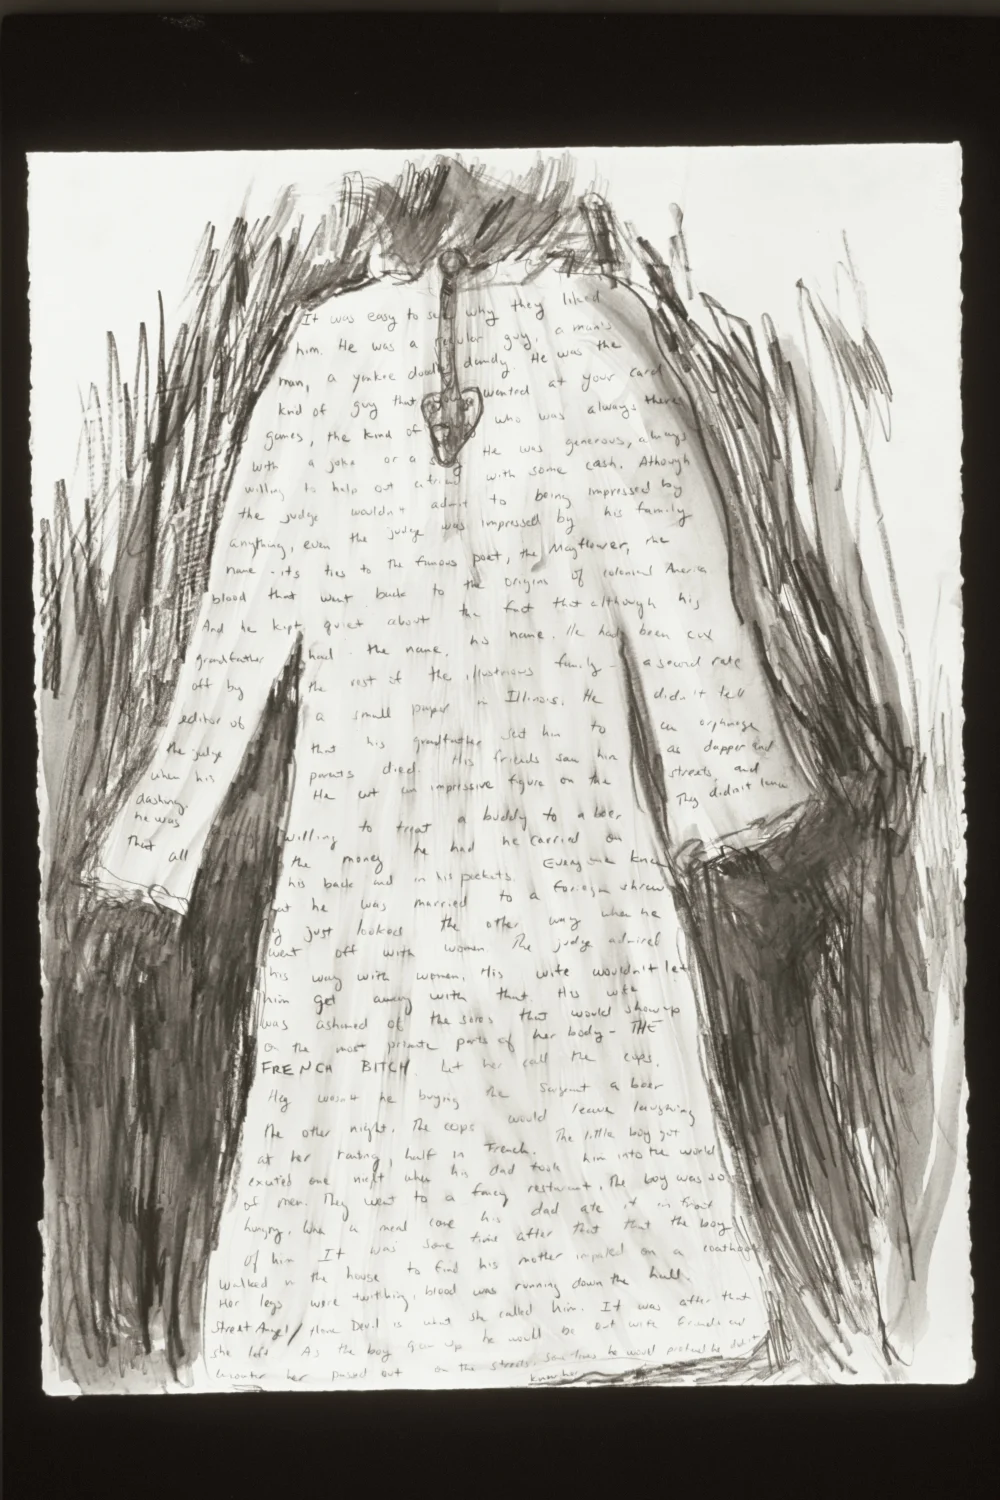 It was easy to see why they liked
him. He was a regular guy, a man's
man, a yankee doodle dandy. He was the
kind of guy that you wanted at your card
games, the kind of who was always there
with a joke or a song He was generous, always
willing to help out a friend with some cash. Athough
the judge wouldn't admit to being impressed by
anything, even the judge was impressed by his family
name - its ties to the famous poet, the Mayflower, the
blood that went back to the origins of colonial America
And he kept quiet about the fact that although his
grandfather had the name, his name. He had been cut
off by the rest of the illustrious family - a second rate
editor of a small paper in Illinois. He didn't tell
the judge that his grandfather sent him to an orphanage
when his parents died. His friends saw him as dapper and
dashing. He cut an impressive figure on the streets, and
he was willing to treat a buddy to a beer They didn't know
that all the money he had he carried on
his back and in his pockets. Everyone knew
that he was married to a foreign shrew
just looked the other way when he
went off with women. The judge admired
his way with women. His wife wouldn't let
him get away with that. His wife
was ashamed of the sores that would show up
on the most private parts of her body - THE
FRENCH BITCH. Let her call the cops.
Hey wasn't he buying the Sargent a beer
the other night. The cops would leave laughing
at her ranting, half in French. The little boy got
excited one night when his dad took him into the world
of men. They went to a fancy restaurant, The boy was so
hungry, When a meal came his dad ate it in front
of him It was some time after that that the boy
walked in the house to find his mother impaled on a coathook
Her legs were twitching, blood was running down the hall.
Street Angel / Home Devil is what she called him. It was after that
she left. As the boy grew up he would be out with friends and
encounter her passed out on the streets. Sometimes he would pretend he didn't
know her